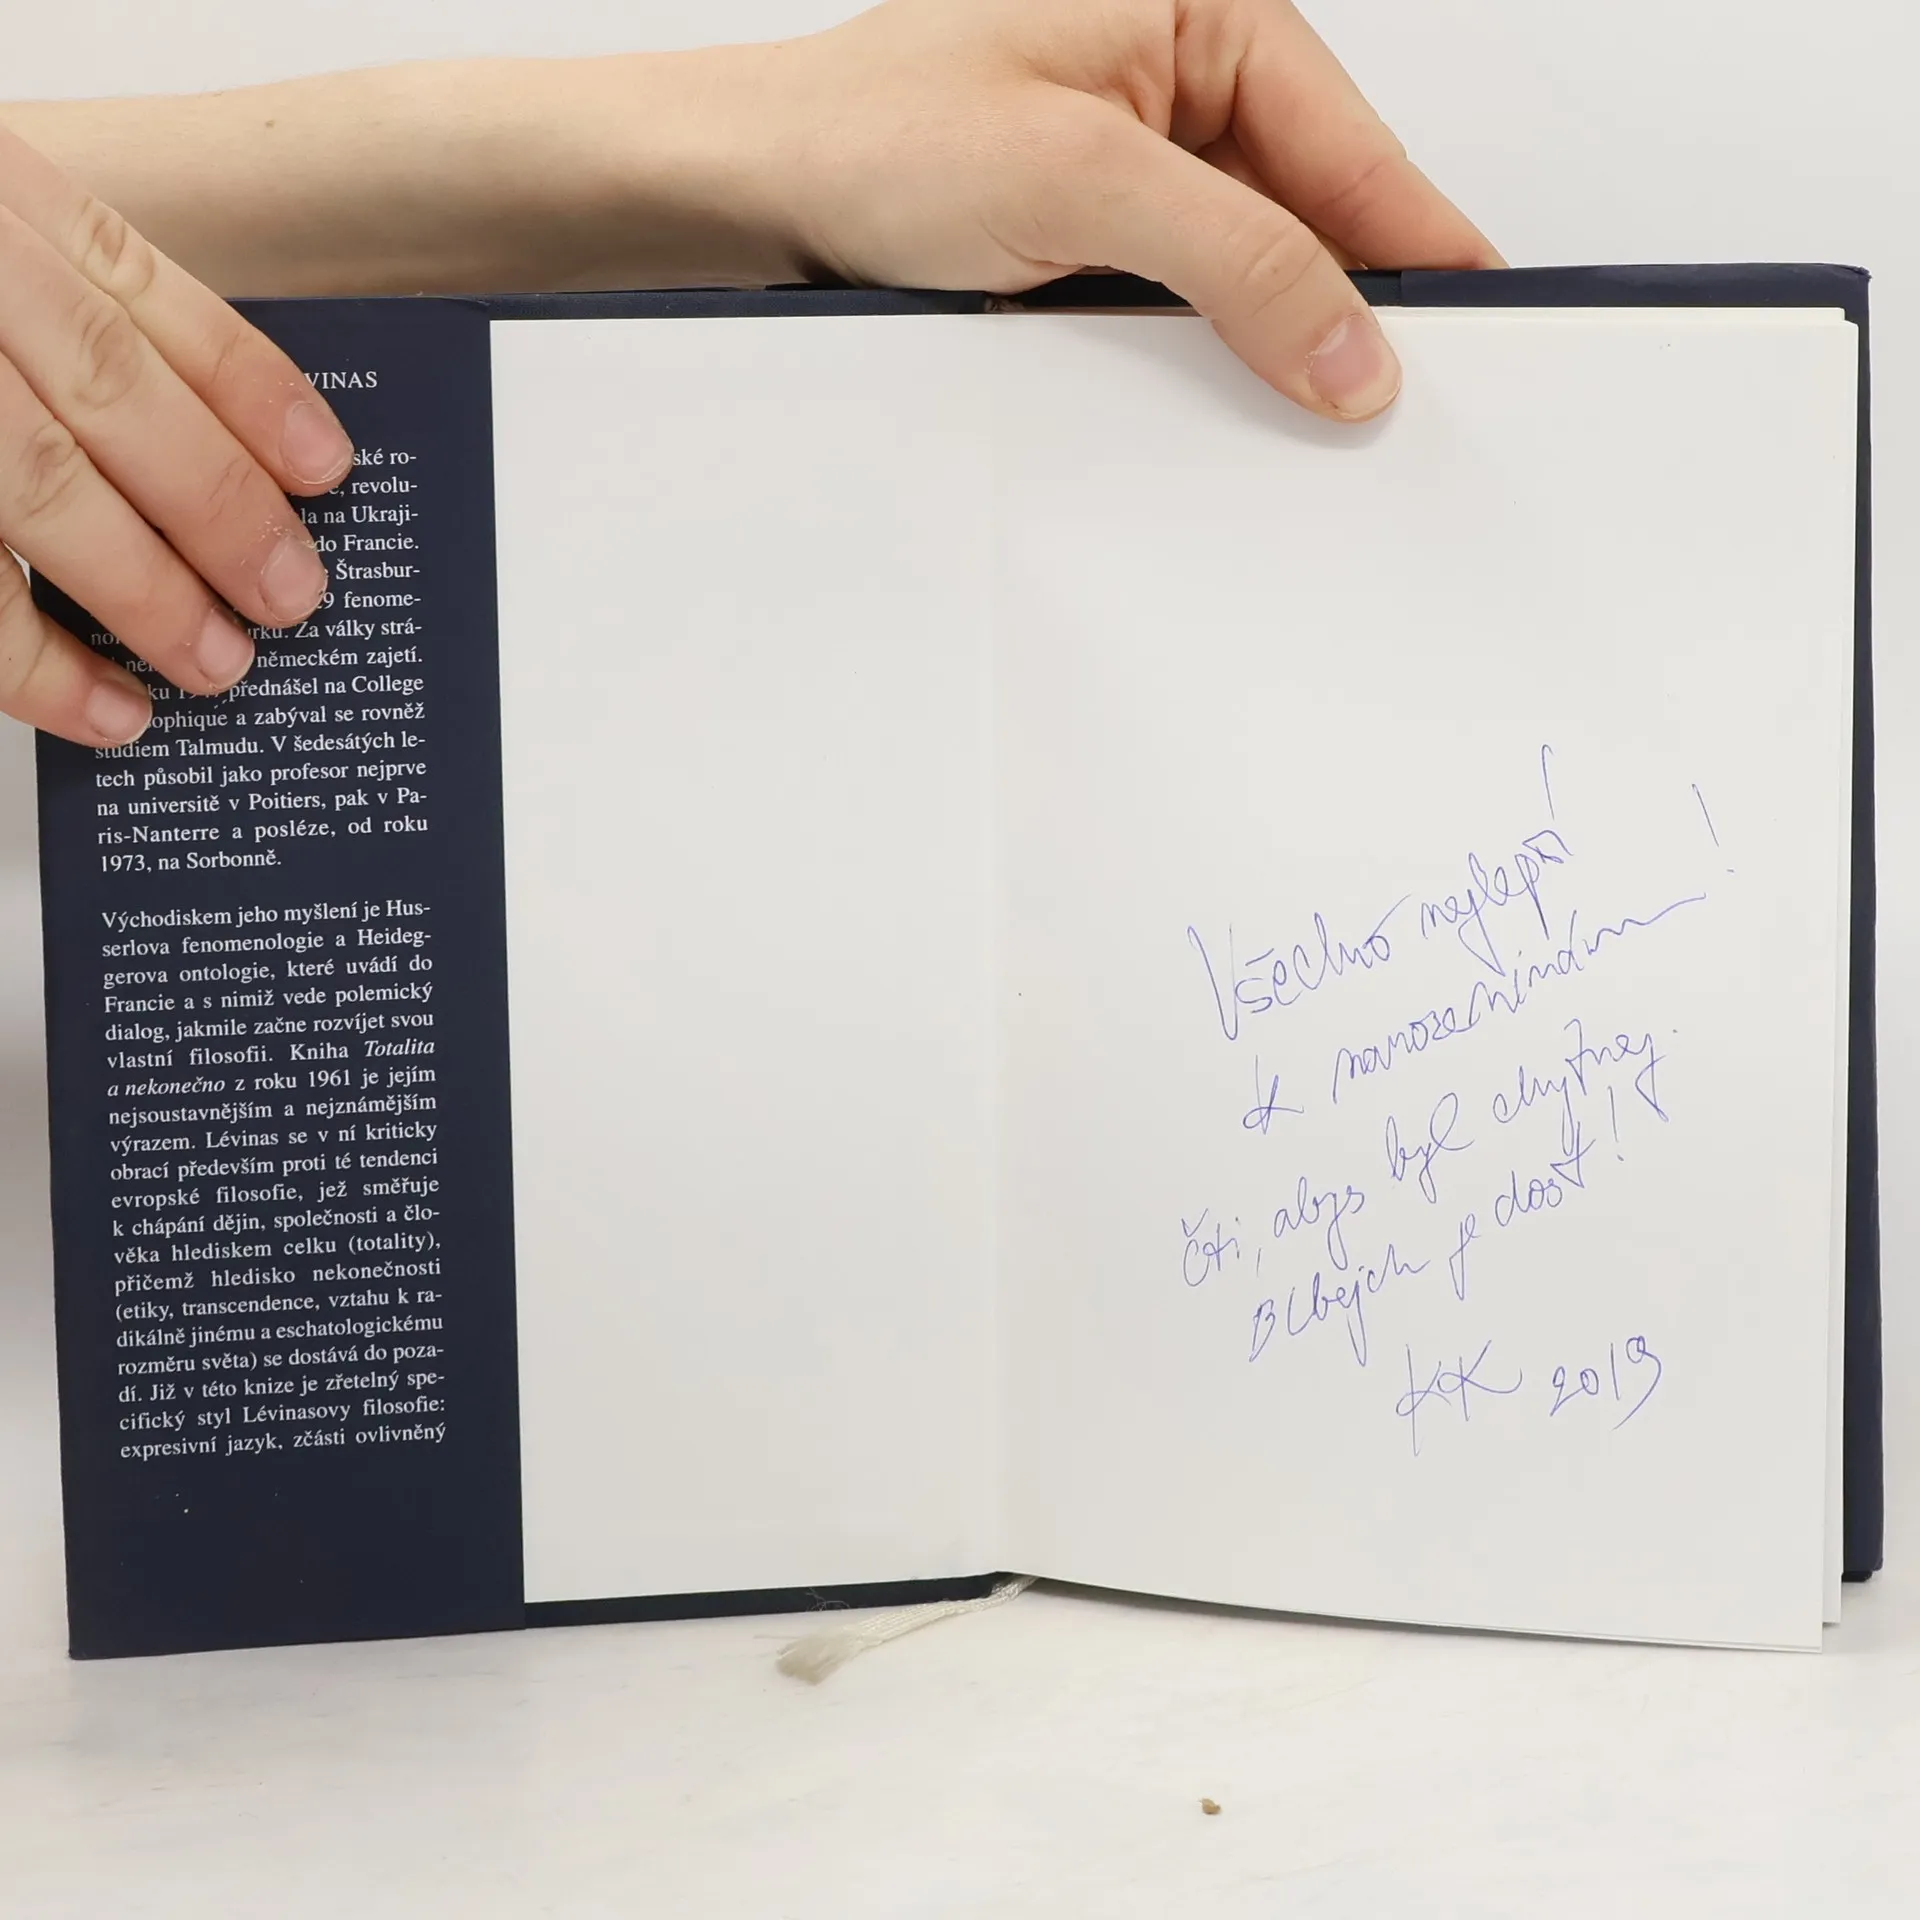 VINAS
ské ro-
, revolu-
la na Ukraji-
do Francie.
Štrasbur-
9 fenome-
Za války strá-
německém zajetí.
přednášel na College
ophique a zabýval se rovněž
studiem Talmudu. V šedesátých le-
tech působil jako profesor nejprve
na universitě v Poitiers, pak v Pa-
ris-Nanterre a posléze, od roku
1973, na Sorbonně.
Východiskem jeho myšlení je Hus-
serlova fenomenologie a Heideg-
gerova ontologie, které uvádí do
Francie a s nimiž vede polemický
dialog, jakmile začne rozvíjet svou
vlastní filosofii. Kniha Totalita
a nekonečno z roku 1961 je jejím
nejsoustavnějším a nejznámějším
výrazem. Lévinas se v ní kriticky
obrací především proti té tendenci
evropské filosofie, jež směřuje
k chápání dějin, společnosti a člo-
věka hlediskem celku (totality),
přičemž hledisko nekonečnosti
(etiky, transcendence, vztahu k ra-
dikálně jinému a eschatologickému
rozměru světa) se dostává do poza-
dí. Již v této knize je zřetelný spe-
cifický styl Lévinasovy filosofie:
expresivní jazyk, zčásti ovlivněný
Všechno nejlepší!
k narozeninám!
Čti, abys byl chytrej.
Blbejch je dost!
KK 2019